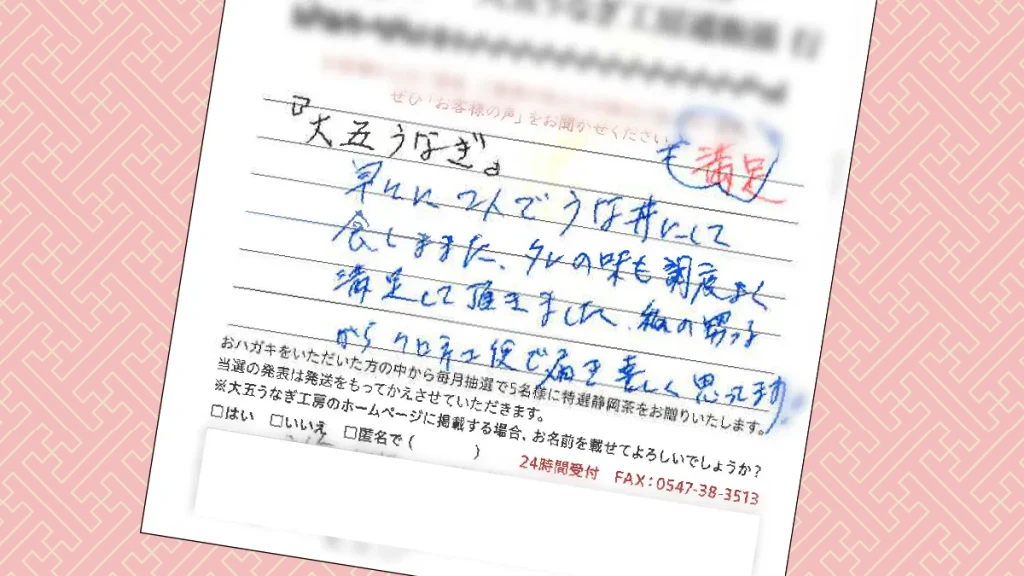 ぜひ「お客様の声」をお聞かせください
満足
『大五うなぎ』
早々に2人でうな丼にして
食しました、タレの味も調度よく
満足して頂きました、
からクロネコ便で届き嬉しく思ってます
おハガキをいただいた方の中から毎月抽選で5名様に特選静岡茶をお贈りいたします。
当選の発表は発送をもってかえさせていただきます。
※大五うなぎ工房のホームページに掲載する場合、お名前を載せてよろしいでしょうか?
□はい □いいえ □匿名で( )
24時間受付 FAX:0547-38-3513